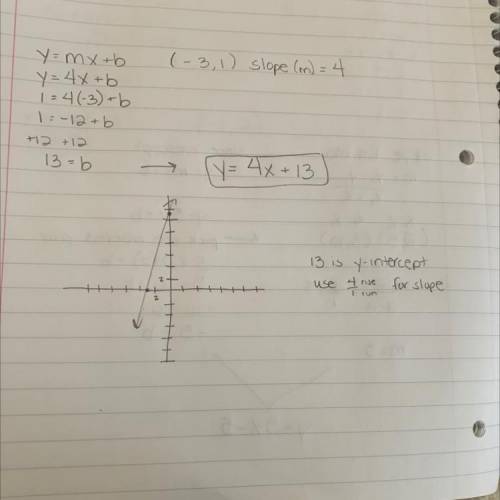 y = mx + b (-3, 1) slope (m) = 4
y = 4x + b
1 = 4(-3) + b
1 = -12 + b
+12 +12
13 = b → y = 4x + 13
2
2
13 is y-intercept
use 4/1 rise/run for slope